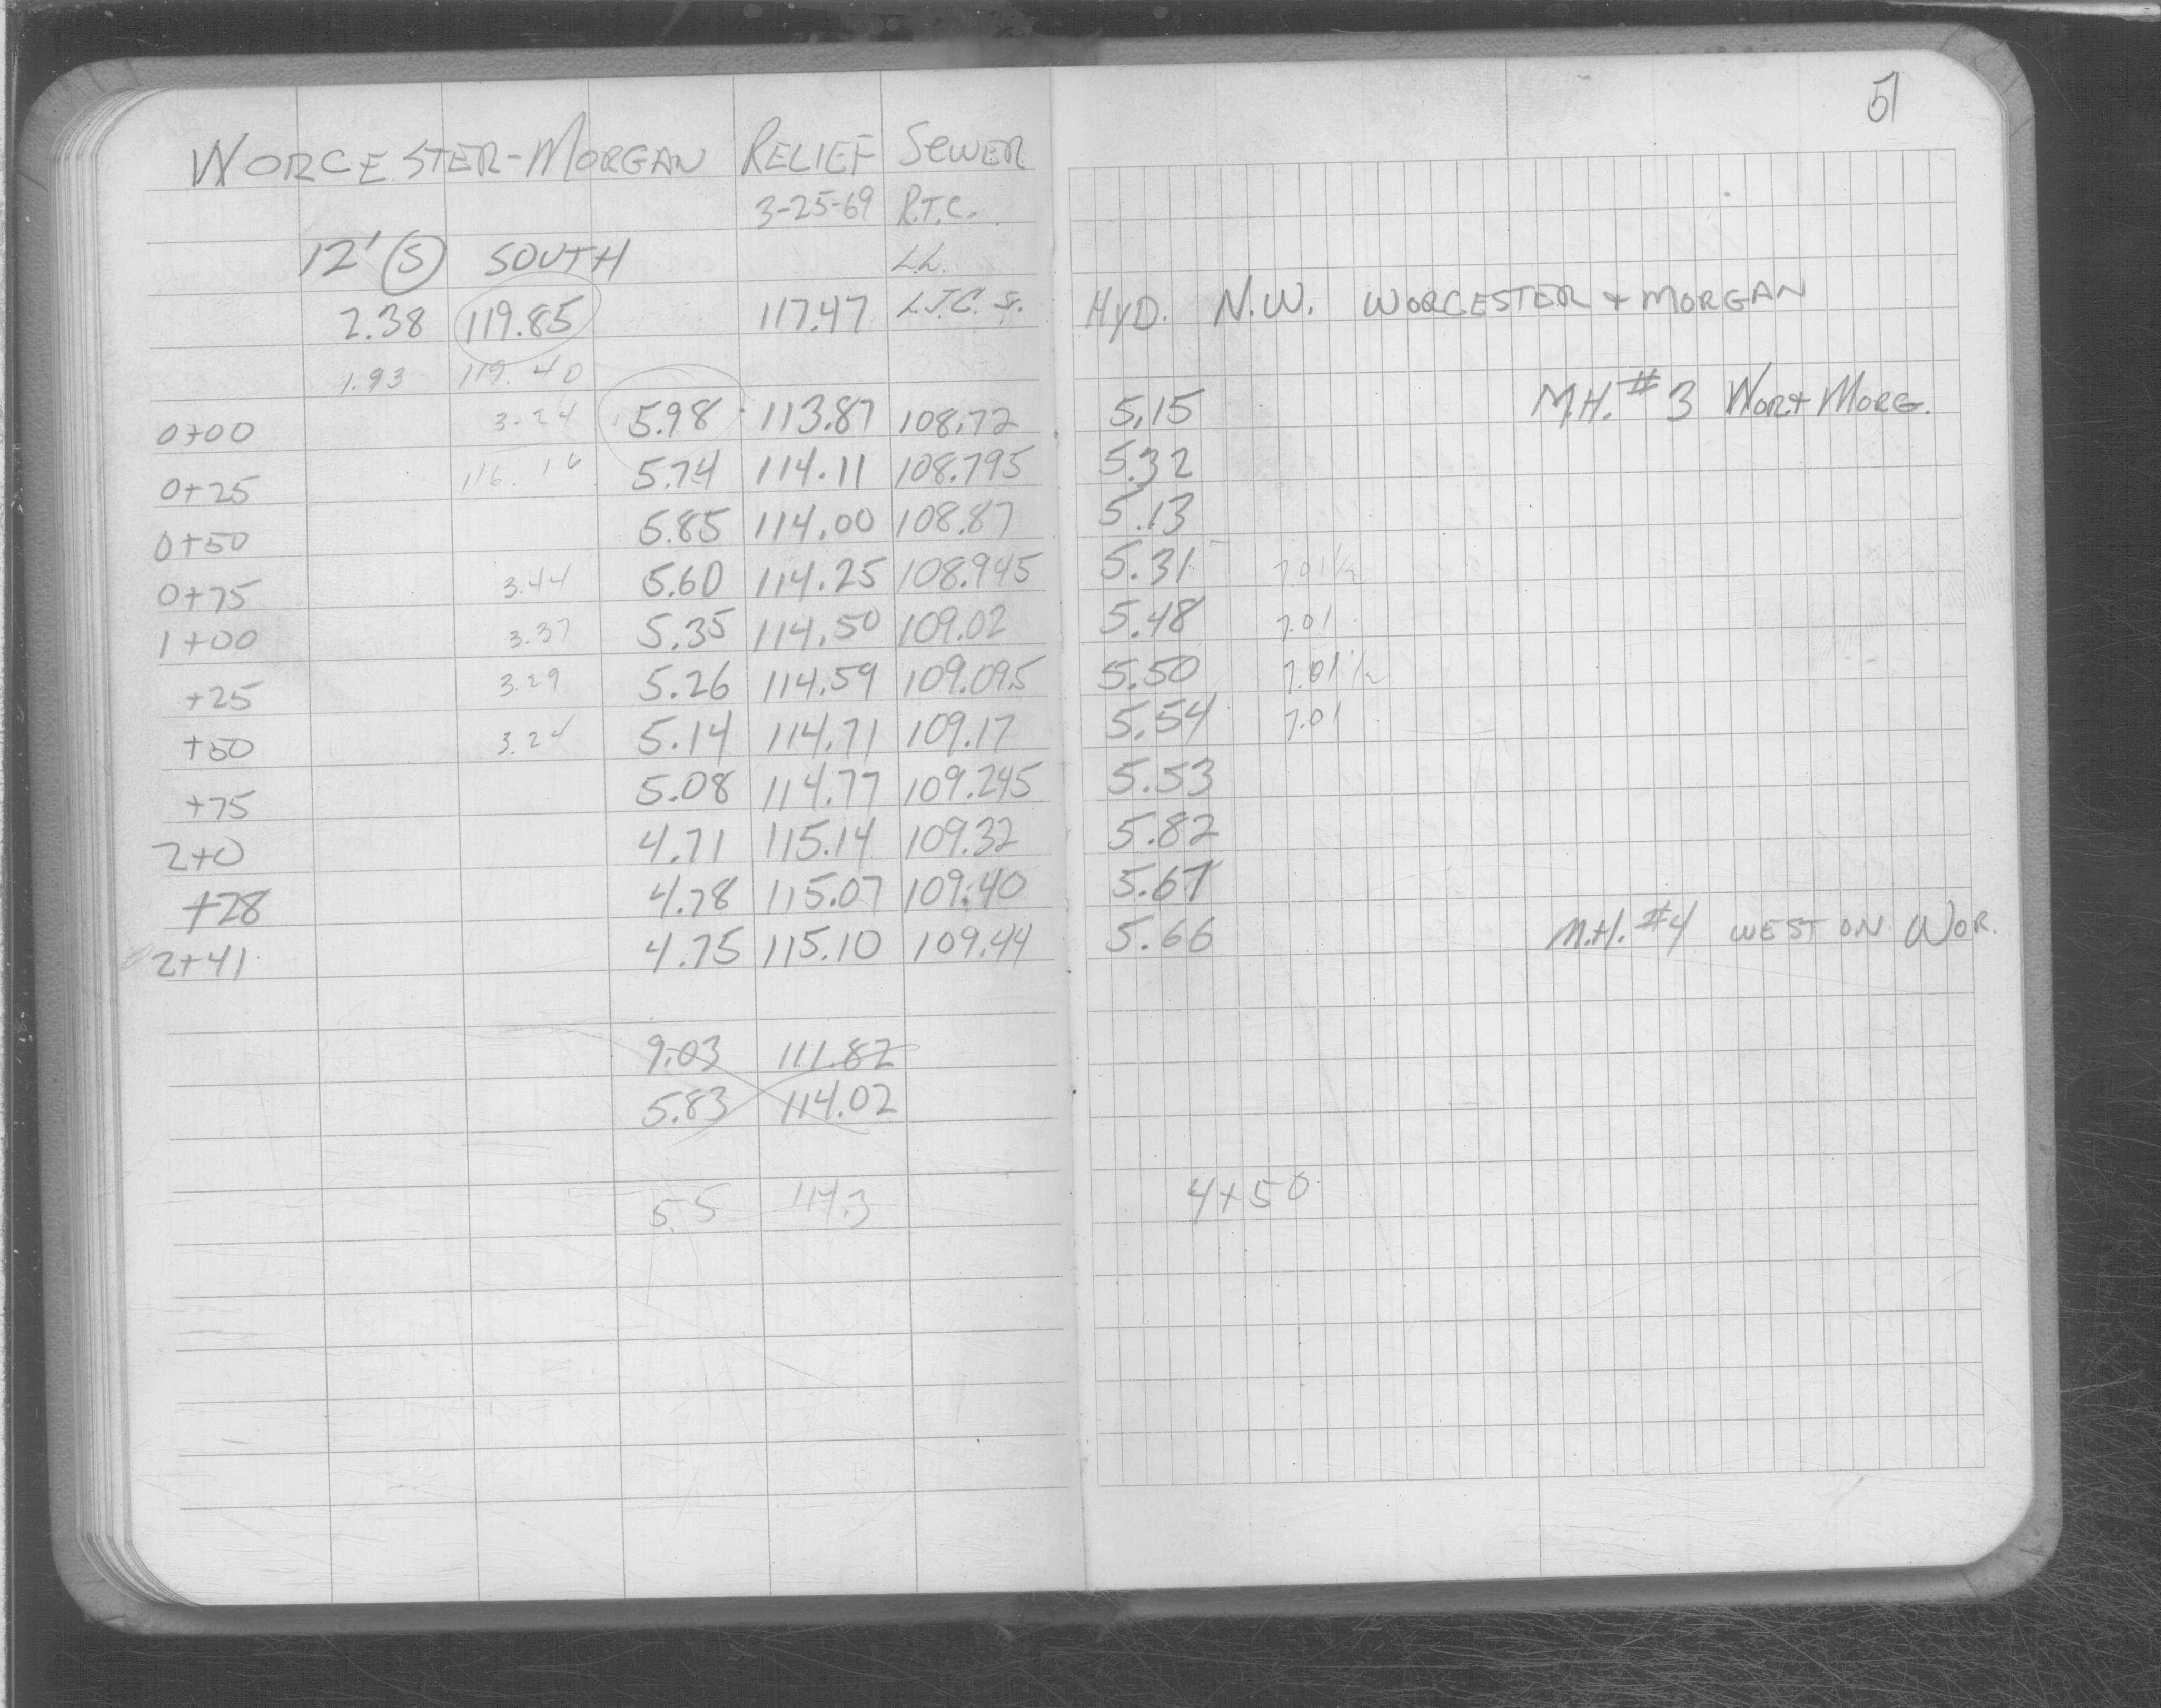 51
WORCESTER-MORGAN RELIEF SEWER
3-25-69 R.T.C.
12' (S) SOUTH L.L.
2.38 119.85 117.47 L.J.C. Sr. HYD. N.W. WORCESTER + MORGAN
1.93 119.40
0+00 3.24 5.98 113.87 108.72 5.15 M.H. #3 WOR + MORG.
0+25 116.16 5.74 114.11 108.795 5.32
0+50 5.85 114.00 108.87 5.13
0+75 3.44 5.60 114.25 108.945 5.31 7.01 1/2
1+00 3.37 5.35 114.50 109.02 5.48 7.01
+25 3.29 5.26 114.59 109.095 5.50 7.01 1/2
+50 3.24 5.14 114.71 109.17 5.54 7.01
+75 5.08 114.77 109.245 5.53
2+0 4.71 115.14 109.32 5.82
+28 4.78 115.07 109.40 5.67
2+41 4.75 115.10 109.44 5.66 M.H. #4 WEST ON WOR.
9.03 111.82
5.83 114.02
5.5 114.3 4+50